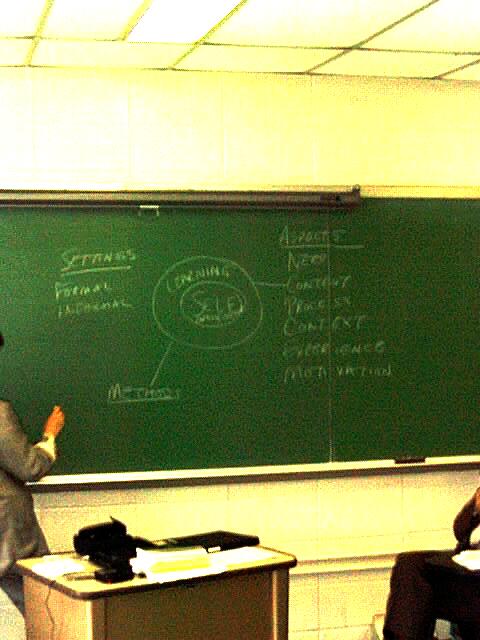 SETTINGS
FORMAL
INFORMAL
LEARNING
SELF
METHODS
ASPECTS
NEED
CONTENT
PROCESS
CONTEXT
EXPERIENCE
MOTIVATION